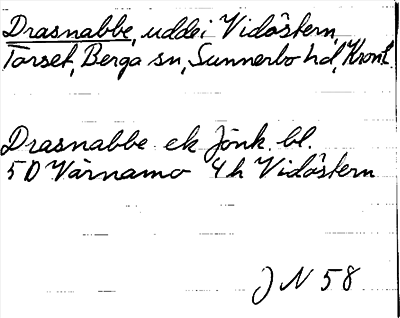 Drasnabbe, udde i Vidöstern,
Torset, Berga sn, Sunnerbo hd, Kront
Drasnabbe ek Jönk. bl.
5D Värnamo 4h Vidöstern
J N 58